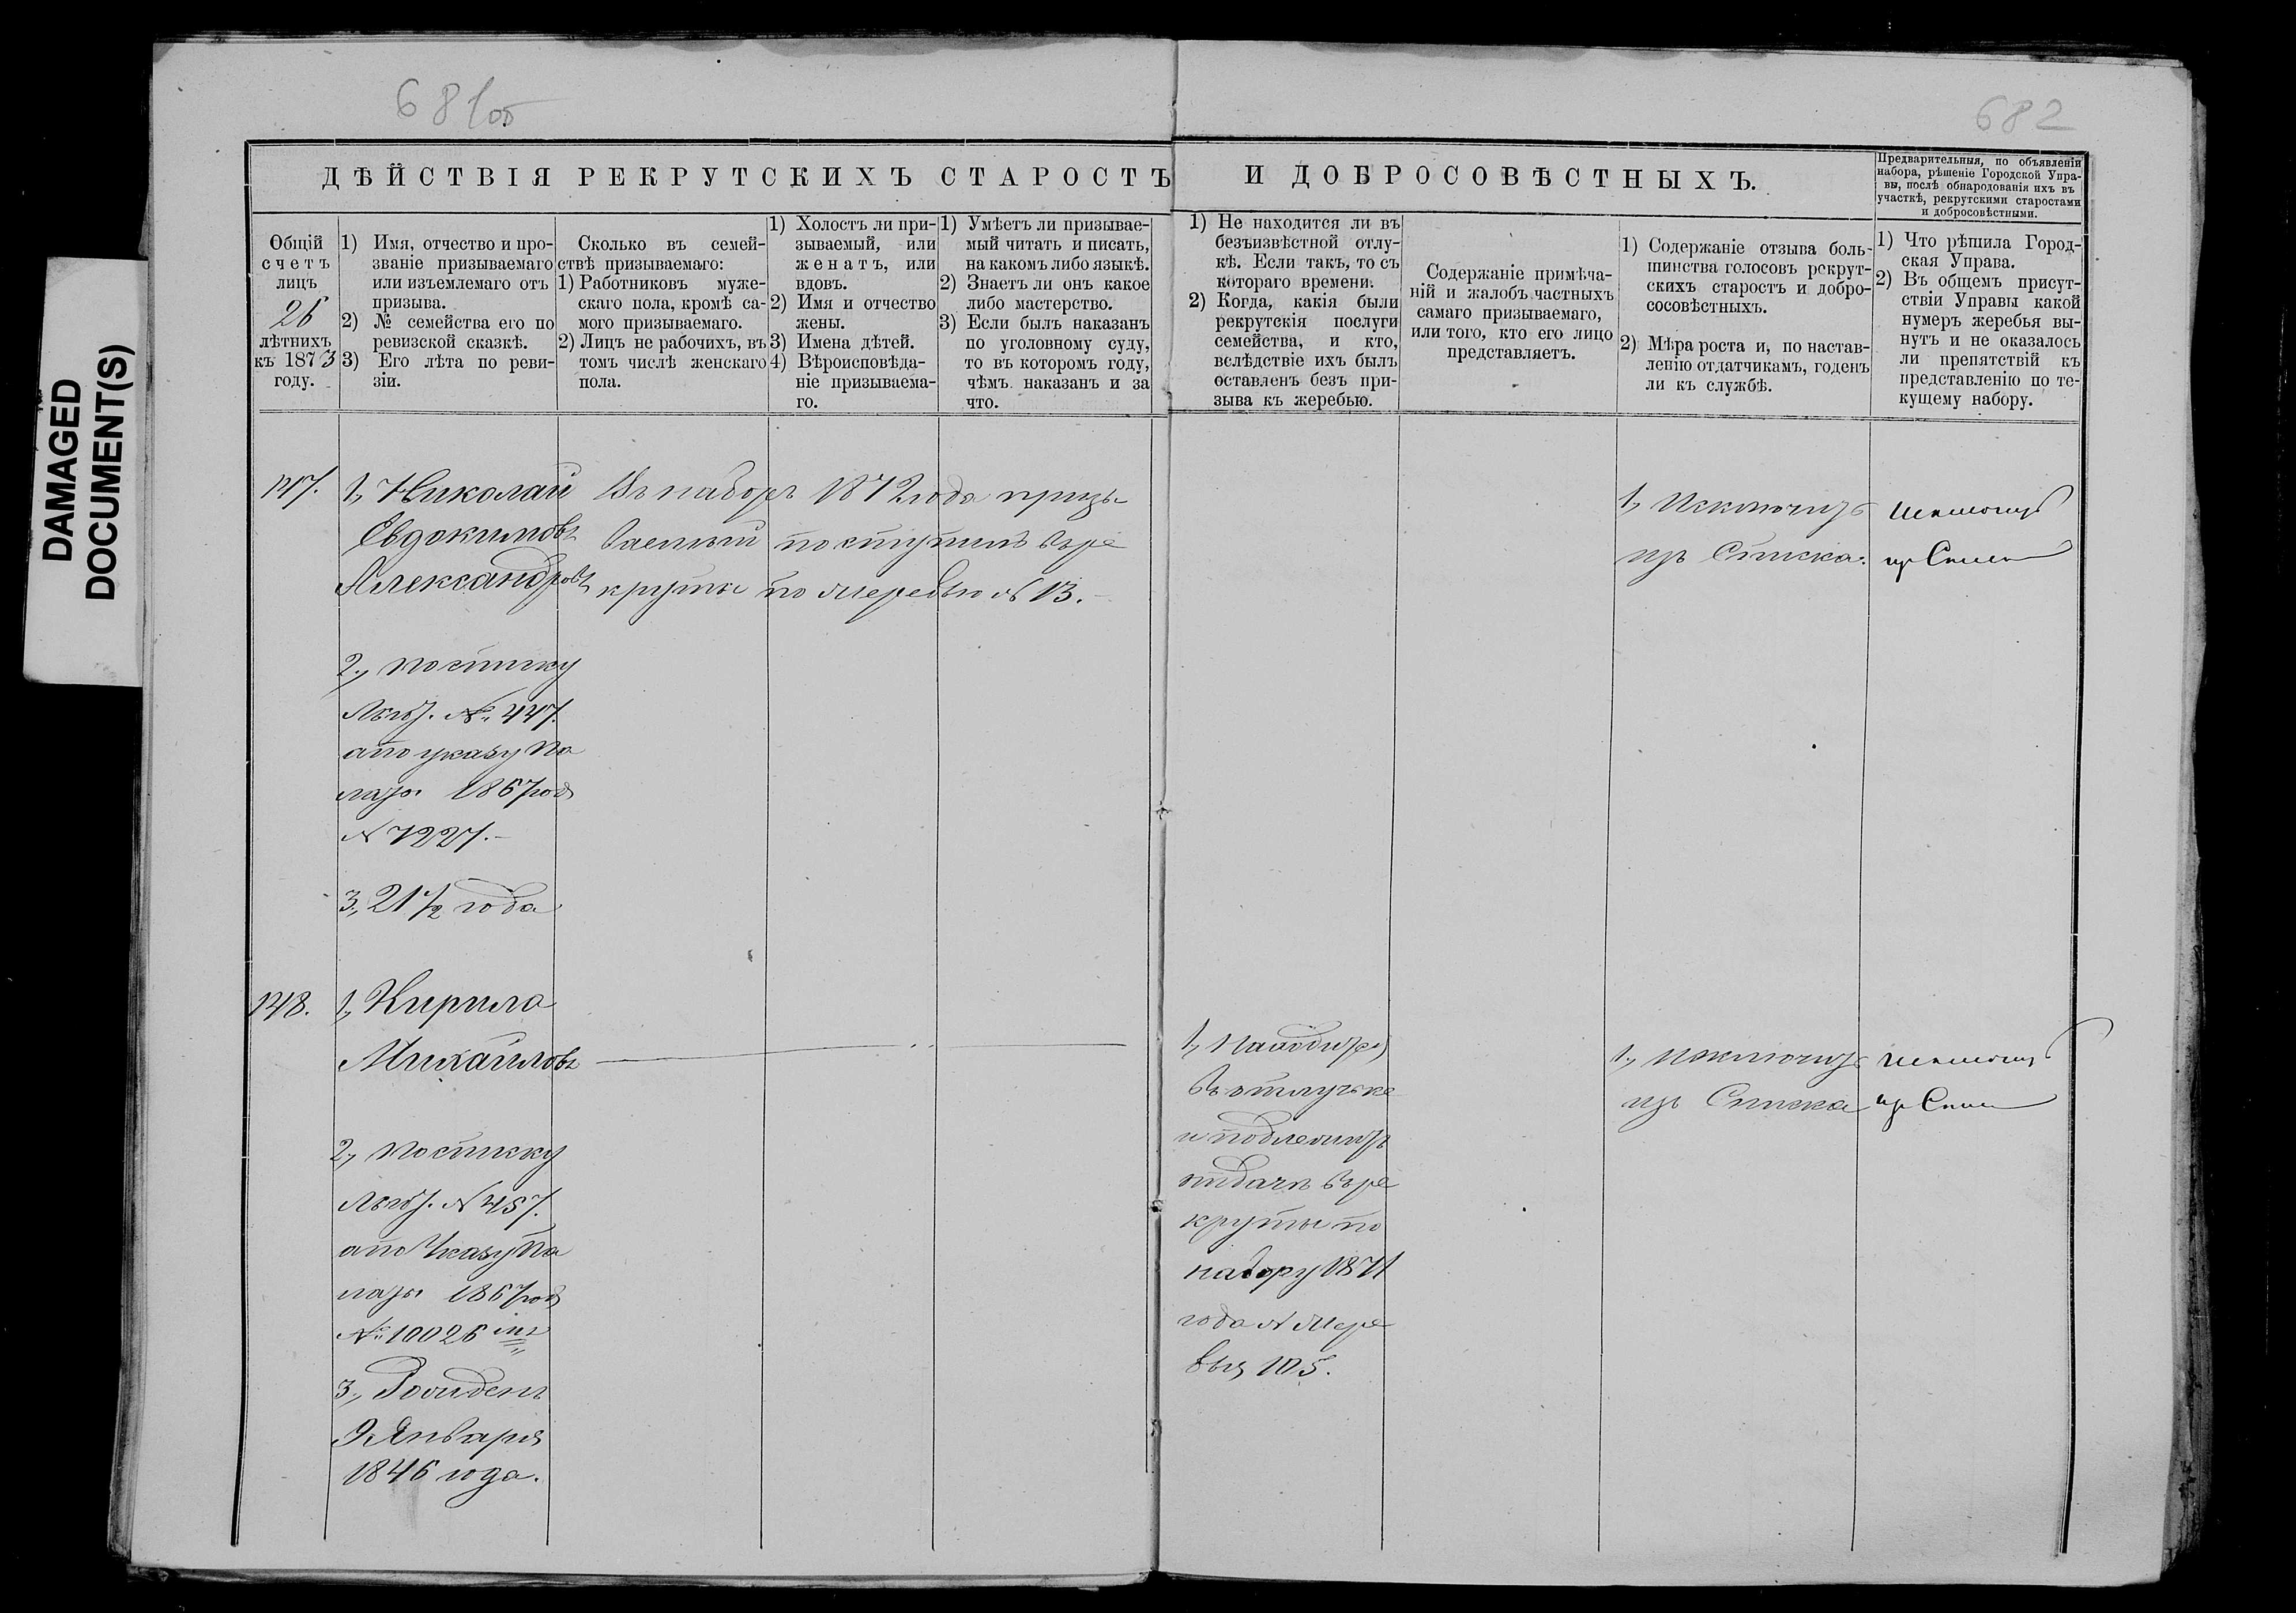 DAMAGED
DOCUMENT(S)
681об
682
ДѢЙСТВІЯ РЕКРУТСКИХЪ СТАРОСТЪ
И ДОБРОСОВѢСТНЫХЪ.
Предварительныя, по объявленіи
набора, рѣшеніе Городской Упра-
вы, послѣ обнародованія ихъ въ
участкѣ, рекрутскими старостами
и добросовѣстными.
Общій
счетъ
лицъ
26
лѣтнихъ
къ 1873
году.
1) Имя, отчество и про-
званіе призываемаго
или изъемлемаго отъ
призыва.
2) № семейства его по
ревизской сказкѣ.
3) Его лѣта по реви-
зіи.
Сколько въ семей-
ствѣ призываемаго:
1) Работниковъ муже-
скаго пола, кромѣ са-
мого призываемаго.
2) Лицъ не рабочихъ, въ
томъ числѣ женскаго
пола.
1) Холостъ ли при-
зываемый, или
женатъ, или
вдовъ.
2) Имя и отчество
жены.
3) Имена дѣтей.
4) Вѣроисповѣда-
ніе призываема-
го.
1) Умѣетъ ли призывае-
мый читать и писать,
на какомъ либо языкѣ.
2) Знаетъ ли онъ какое
либо мастерство.
3) Если былъ наказанъ
по уголовному суду,
то въ которомъ году,
чѣмъ наказанъ и за
что.
1) Не находится ли въ
безъизвѣстной отлу-
кѣ. Если такъ, то съ
котораго времени.
2) Когда, какія были
рекрутскія послуги
семейства, и кто,
вслѣдствіе ихъ былъ
оставленъ безъ при-
зыва къ жеребью.
Содержаніе примѣча-
ній и жалобъ частныхъ
самаго призываемаго,
или того, кто его лицо
представляетъ.
1) Содержаніе отзыва боль-
шинства голосовъ рекрут-
скихъ старостъ и добро-
сосовѣстныхъ.
2) Мѣра роста и, по настав-
ленію отдатчикамъ, годенъ
ли къ службѣ.
1) Что рѣшила Город-
ская Управа.
2) Въ общемъ присут-
ствіи Управы какой
нумеръ жеребья вы-
нутъ и не оказалось
ли препятствій къ
представленію по те-
кущему набору.
147.
1, Николай
Евдокимовъ
Александровъ
2, по списку
№ 447.
а по указу Па
латы 1867 год
N 7227.-
3, 21 1/2 года
Въ наборъ 1872 года призы
ваемый поступилъ въ ре
круты по жеребью № 13.-
1, Исключить
изъ Списка.
Исключить
из Списка
148.
1, Кирила
Михайловъ
2, по списку
N 457.
а по Указу Па
латы 1867 год
№ 10026
3, Рожденъ
9 Января
1846 года.
1, Находится
въ отлучке
и подлежитъ
отдачѣ въ ре
круты по
набору 1871
года N жере
бья 105.
1, Исключить
изъ Списка
Исключить
из Списка